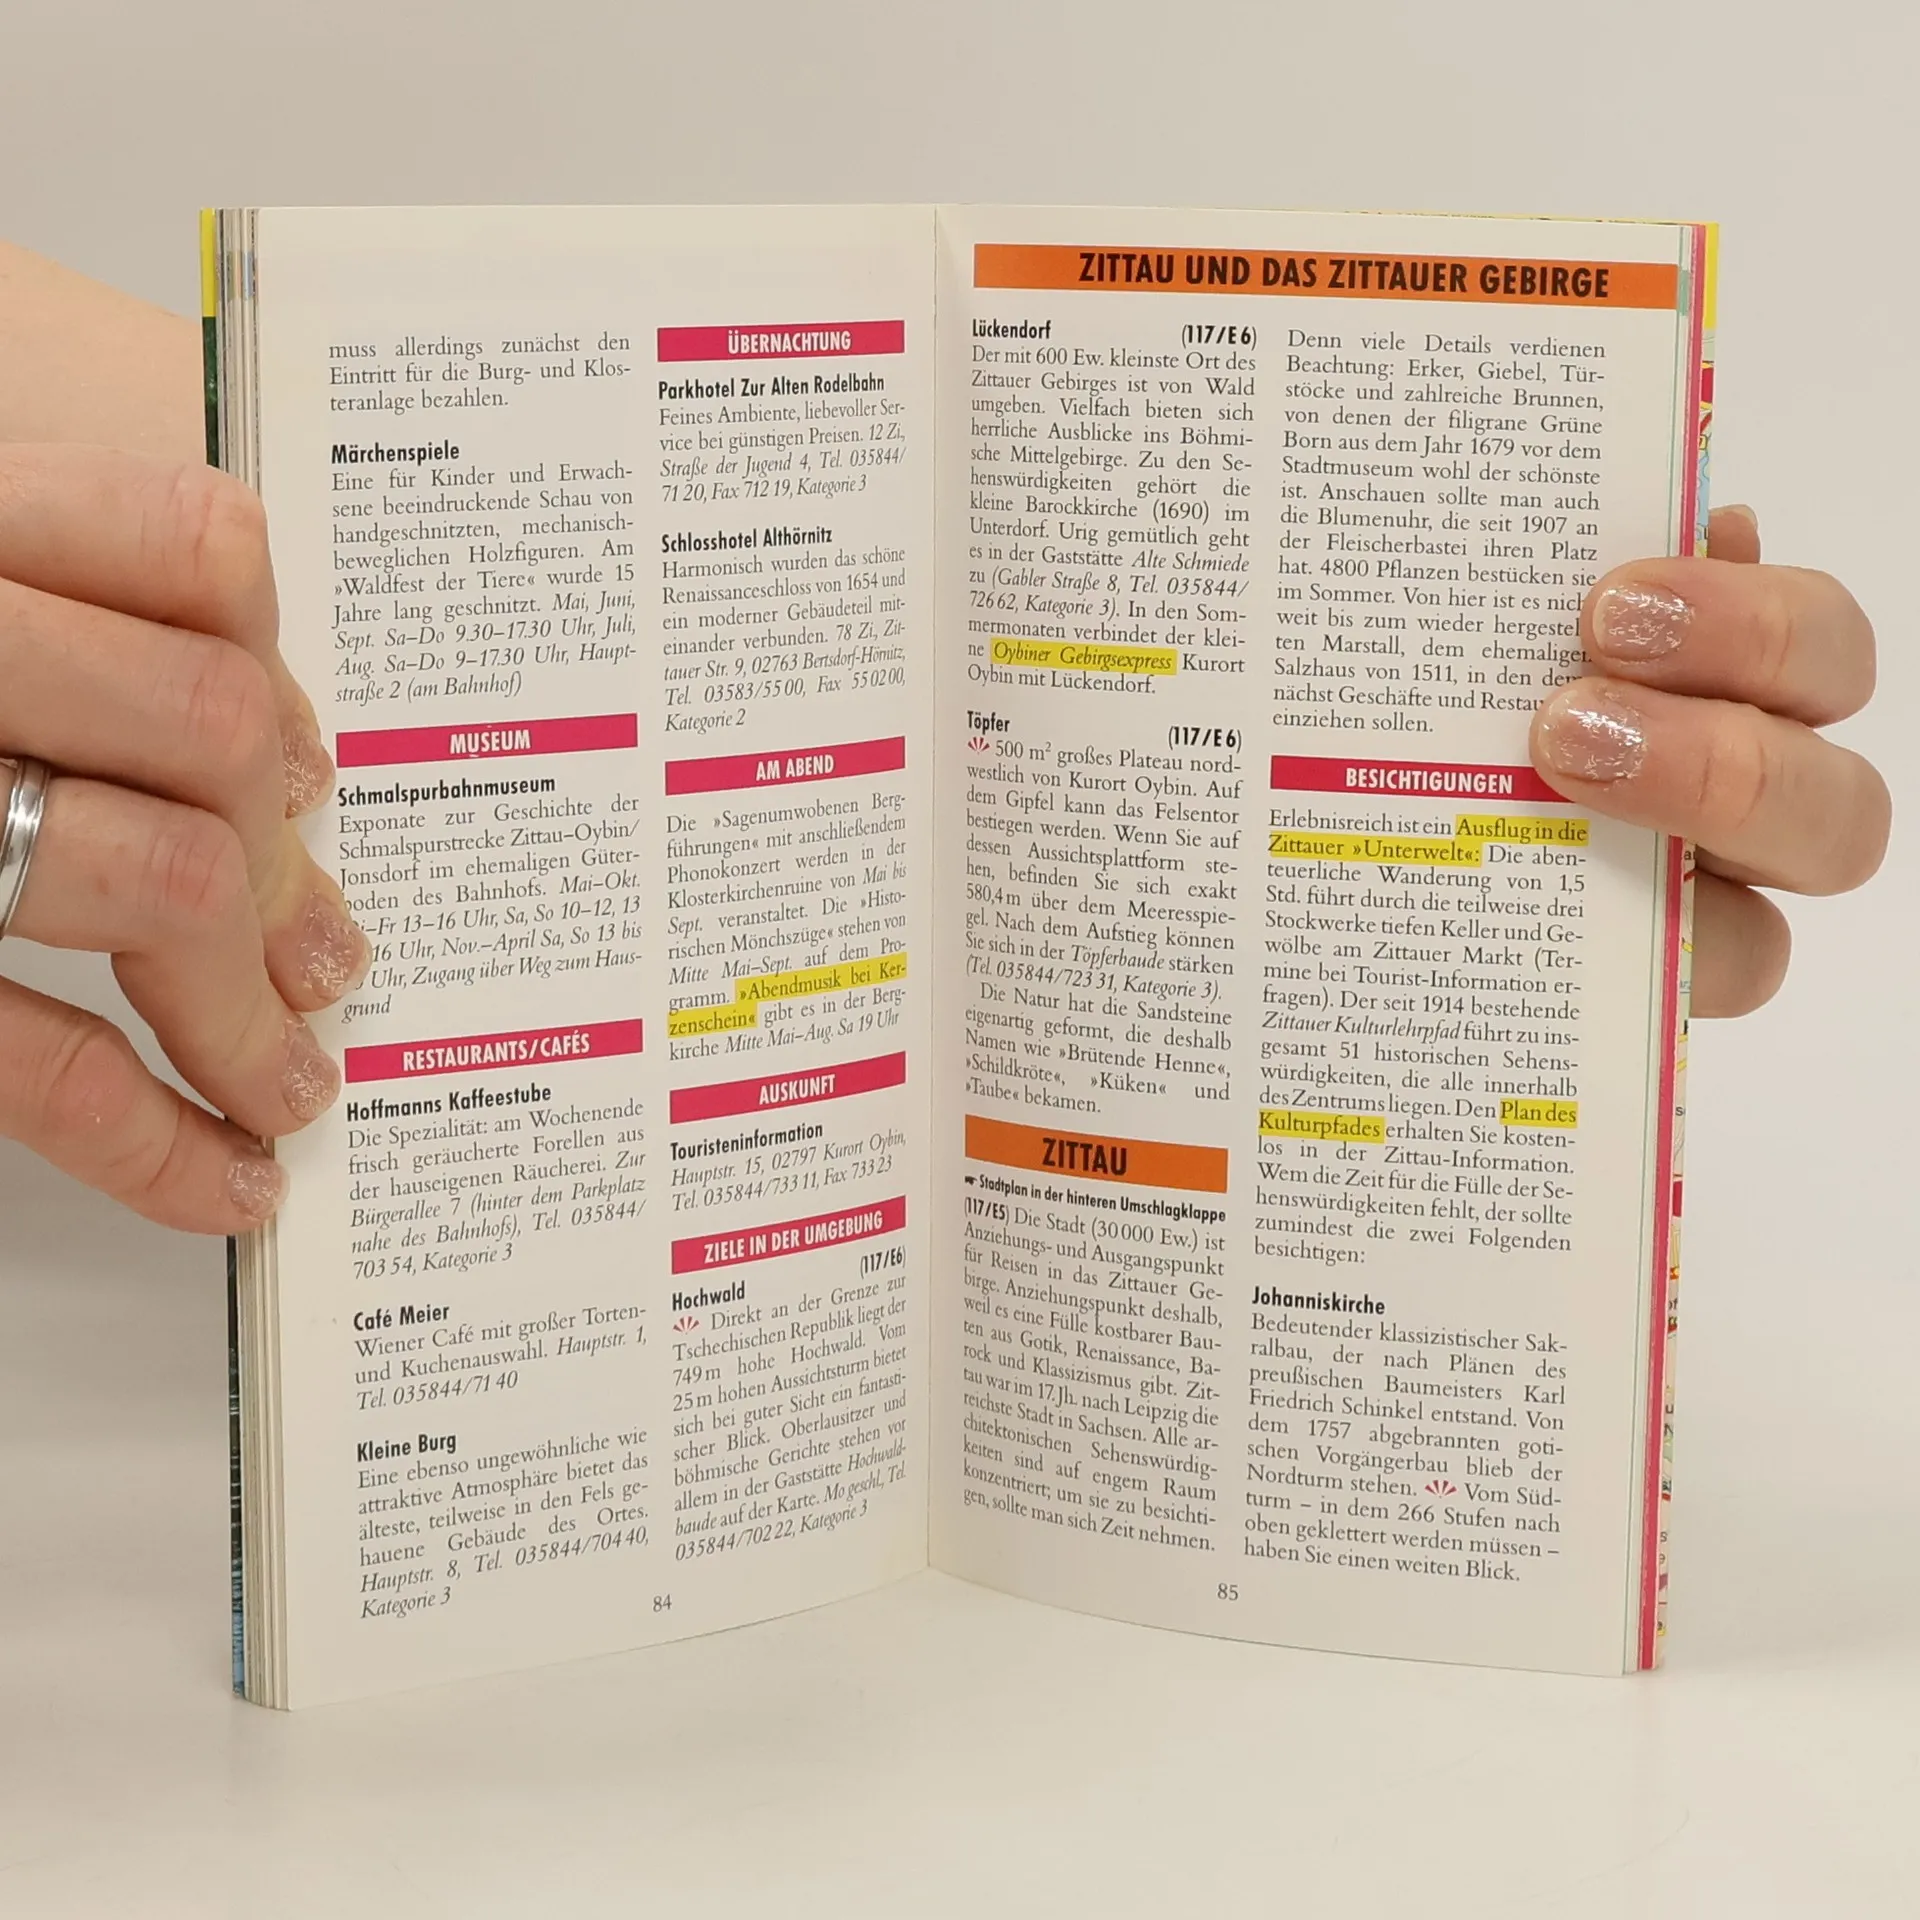 muss allerdings zunächst den
Eintritt für die Burg- und Klos-
teranlage bezahlen.
Märchenspiele
Eine für Kinder und Erwach-
sene beeindruckende Schau von
handgeschnitzten, mechanisch-
beweglichen Holzfiguren. Am
»Waldfest der Tiere« wurde 15
Jahre lang geschnitzt. Mai, Juni,
Sept. Sa–Do 9.30–17.30 Uhr, Juli,
Aug. Sa–Do 9–17.30 Uhr, Haupt-
straße 2 (am Bahnhof)
MUSEUM
Schmalspurbahnmuseum
Exponate zur Geschichte der
Schmalspurstrecke Zittau–Oybin/
Jonsdorf im ehemaligen Güter-
boden des Bahnhofs. Mai–Okt.
i–Fr 13–16 Uhr, Sa, So 10–12, 13
16 Uhr, Nov.–April Sa, So 13 bis
Uhr, Zugang über Weg zum Haus-
grund
RESTAURANTS/CAFÉS
Hoffmanns Kaffeestube
Die Spezialität: am Wochenende
frisch geräucherte Forellen aus
der hauseigenen Räucherei. Zur
Bürgerallee 7 (hinter dem Parkplatz
nahe des Bahnhofs), Tel. 035844/
703 54, Kategorie 3
Café Meier
Wiener Café mit großer Torten-
und Kuchenauswahl. Hauptstr. 1,
Tel. 035844/71 40
Kleine Burg
Eine ebenso ungewöhnliche wie
attraktive Atmosphäre bietet das
älteste, teilweise in den Fels ge-
hauene Gebäude des Ortes.
Hauptstr. 8, Tel. 035844/704 40,
Kategorie 3
ÜBERNACHTUNG
Parkhotel Zur Alten Rodelbahn
Feines Ambiente, liebevoller Ser-
vice bei günstigen Preisen. 12 Zi,
Straße der Jugend 4, Tel. 035844/
71 20, Fax 712 19, Kategorie 3
Schlosshotel Althörnitz
Harmonisch wurden das schöne
Renaissanceschloss von 1654 und
ein moderner Gebäudeteil mit-
einander verbunden. 78 Zi, Zit-
tauer Str. 9, 02763 Bertsdorf-Hörnitz,
Tel. 03583/55 00, Fax 55 02 00,
Kategorie 2
AM ABEND
Die »Sagenumwobenen Berg-
führungen« mit anschließendem
Phonokonzert werden in der
Klosterkirchenruine von Mai bis
Sept. veranstaltet. Die »Histo-
rischen Mönchszüge« stehen von
Mitte Mai–Sept. auf dem Pro-
gramm. »Abendmusik bei Ker-
zenschein« gibt es in der Berg-
kirche Mitte Mai–Aug. Sa 19 Uhr
AUSKUNFT
Touristeninformation
Hauptstr. 15, 02797 Kurort Oybin,
Tel. 035844/733 11, Fax 733 23
ZIELE IN DER UMGEBUNG
Hochwald (117/E6)
Direkt an der Grenze zur
Tschechischen Republik liegt der
749 m hohe Hochwald. Vom
25 m hohen Aussichtsturm bietet
sich bei guter Sicht ein fantasti-
scher Blick. Oberlausitzer und
böhmische Gerichte stehen vor
allem in der Gaststätte Hochwald-
baude auf der Karte. Mo geschl., Tel.
035844/702 22, Kategorie 3
84
ZITTAU UND DAS ZITTAUER GEBIRGE
Lückendorf (117/E 6)
Der mit 600 Ew. kleinste Ort des
Zittauer Gebirges ist von Wald
umgeben. Vielfach bieten sich
herrliche Ausblicke ins Böhmi-
sche Mittelgebirge. Zu den Se-
henswürdigkeiten gehört die
kleine Barockkirche (1690) im
Unterdorf. Urig gemütlich geht
es in der Gaststätte Alte Schmiede
zu (Gabler Straße 8, Tel. 035844/
726 62, Kategorie 3). In den Som-
mermonaten verbindet der klei-
ne Oybiner Gebirgsexpress Kurort
Oybin mit Lückendorf.
Töpfer (117/E 6)
500 m² großes Plateau nord-
westlich von Kurort Oybin. Auf
dem Gipfel kann das Felsentor
bestiegen werden. Wenn Sie auf
dessen Aussichtsplattform ste-
hen, befinden Sie sich exakt
580,4 m über dem Meeresspie-
gel. Nach dem Aufstieg können
Sie sich in der Töpferbaude stärken
(Tel. 035844/723 31, Kategorie 3).
Die Natur hat die Sandsteine
eigenartig geformt, die deshalb
Namen wie »Brütende Henne«,
»Schildkröte«, »Küken« und
»Taube« bekamen.
ZITTAU
☛ Stadtplan in der hinteren Umschlagklappe
(117/E5) Die Stadt (30 000 Ew.) ist
Anziehungs- und Ausgangspunkt
für Reisen in das Zittauer Ge-
birge. Anziehungspunkt deshalb,
weil es eine Fülle kostbarer Bau-
ten aus Gotik, Renaissance, Ba-
rock und Klassizismus gibt. Zit-
tau war im 17. Jh. nach Leipzig die
reichste Stadt in Sachsen. Alle ar-
chitektonischen Sehenswürdig-
keiten sind auf engem Raum
konzentriert; um sie zu besichti-
gen, sollte man sich Zeit nehmen.
Denn viele Details verdienen
Beachtung: Erker, Giebel, Tür-
stöcke und zahlreiche Brunnen,
von denen der filigrane Grüne
Born aus dem Jahr 1679 vor dem
Stadtmuseum wohl der schönste
ist. Anschauen sollte man auch
die Blumenuhr, die seit 1907 an
der Fleischerbastei ihren Platz
hat. 4800 Pflanzen bestücken sie
im Sommer. Von hier ist es nich
weit bis zum wieder hergestel
ten Marstall, dem ehemaligen
Salzhaus von 1511, in den dem
nächst Geschäfte und Restau
einziehen sollen.
BESICHTIGUNGEN
Erlebnisreich ist ein Ausflug in die
Zittauer »Unterwelt«: Die aben-
teuerliche Wanderung von 1,5
Std. führt durch die teilweise drei
Stockwerke tiefen Keller und Ge-
wölbe am Zittauer Markt (Ter-
mine bei Tourist-Information er-
fragen). Der seit 1914 bestehende
Zittauer Kulturlehrpfad führt zu ins-
gesamt 51 historischen Sehens-
würdigkeiten, die alle innerhalb
des Zentrums liegen. Den Plan des
Kulturpfades erhalten Sie kosten-
los in der Zittau-Information.
Wem die Zeit für die Fülle der Se-
henswürdigkeiten fehlt, der sollte
zumindest die zwei Folgenden
besichtigen:
Johanniskirche
Bedeutender klassizistischer Sak-
ralbau, der nach Plänen des
preußischen Baumeisters Karl
Friedrich Schinkel entstand. Von
dem 1757 abgebrannten goti-
schen Vorgängerbau blieb der
Nordturm stehen. Vom Süd-
turm – in dem 266 Stufen nach
oben geklettert werden müssen –
haben Sie einen weiten Blick.
85